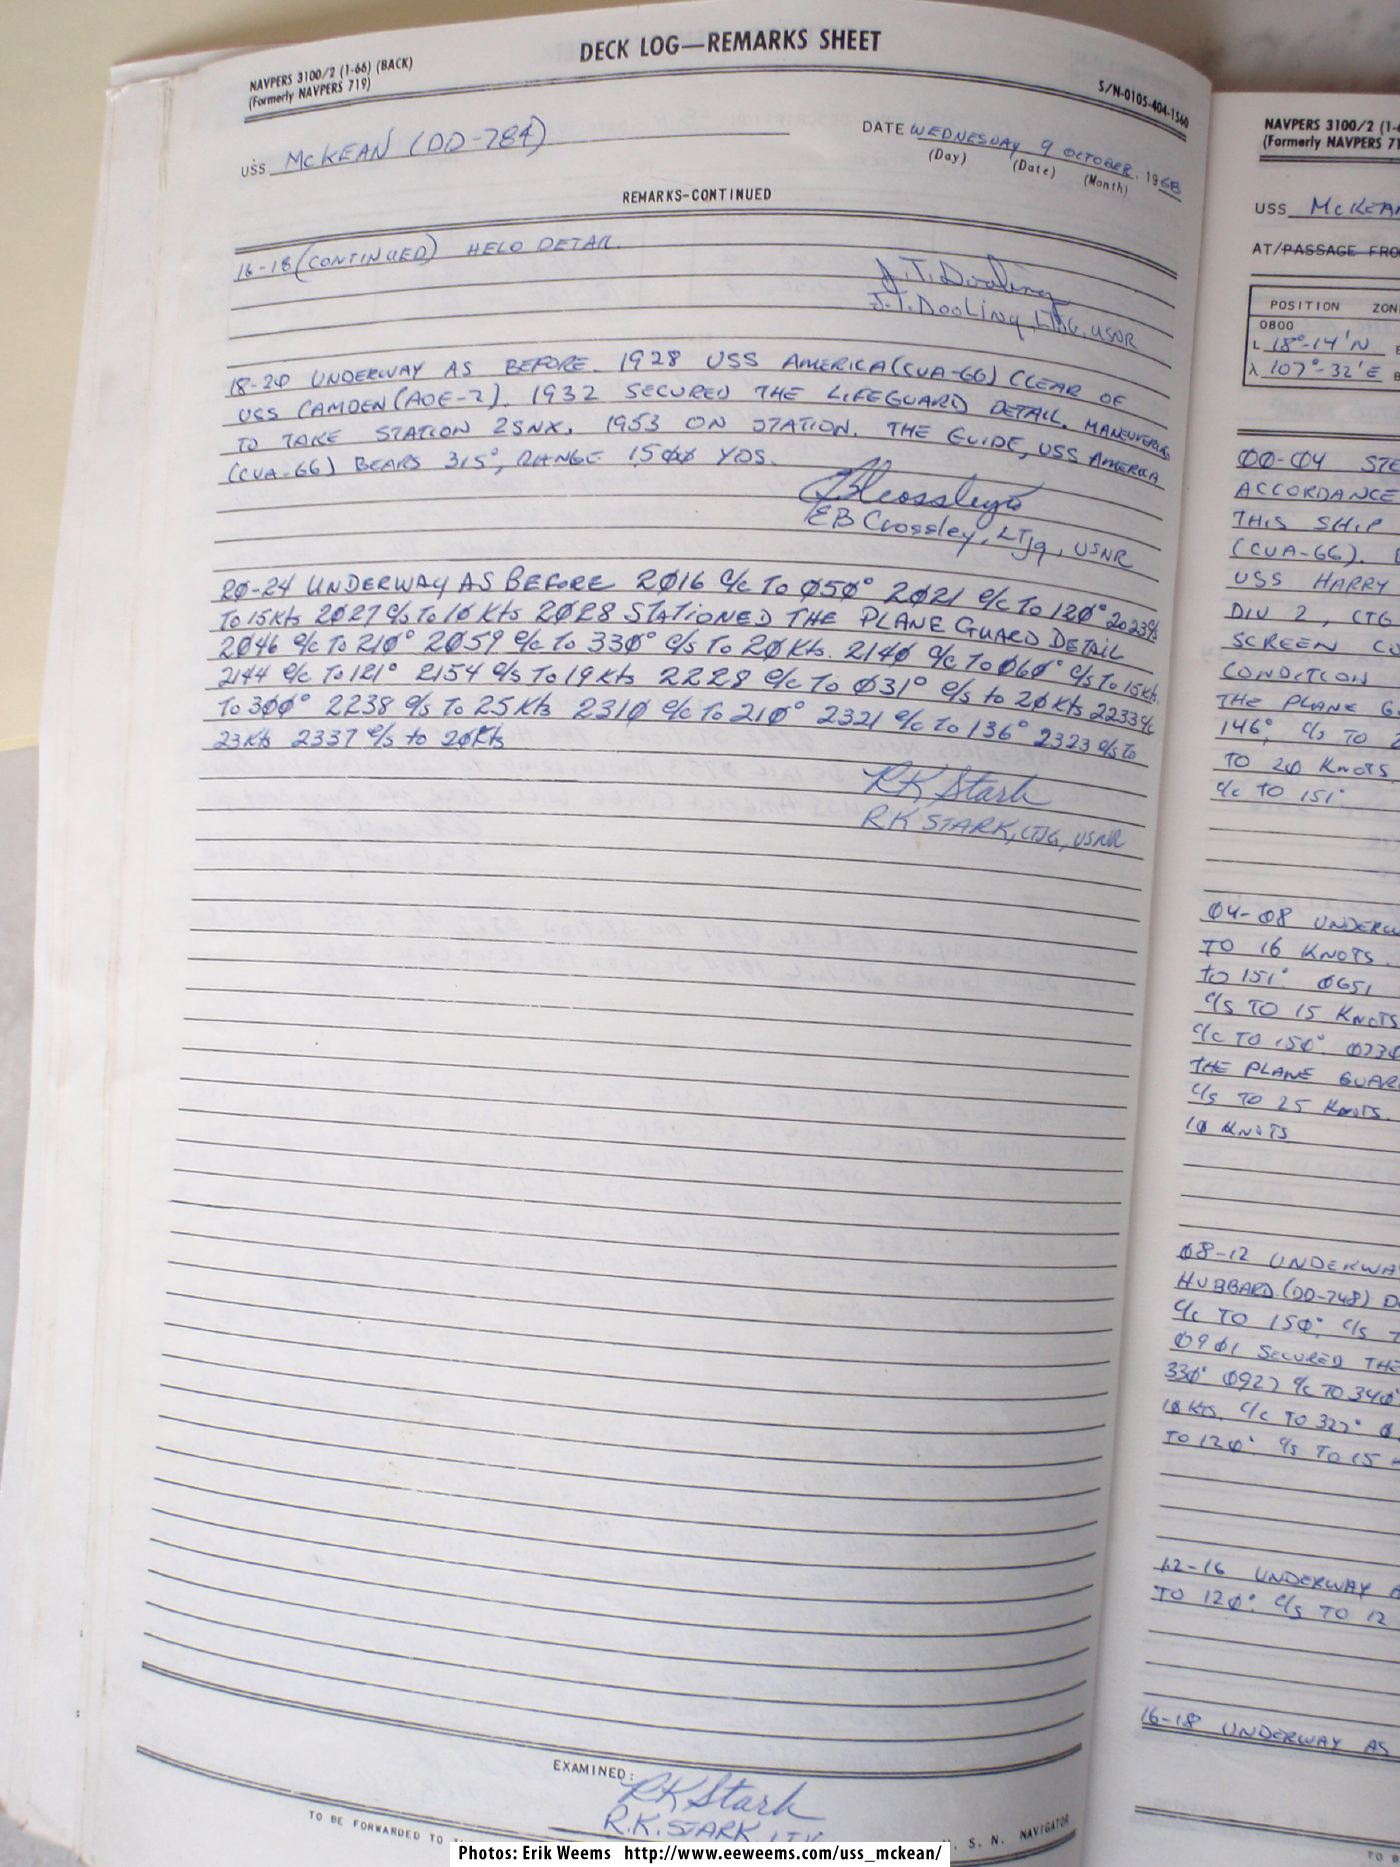 DECK LOG—REMARKS SHEET
NAVPERS 3100/2 (1-66) (BACK)
(Formerly NAVPERS 719)
S/N-0105-404-1560
USS McKEAN (DD-784)
DATE WEDNESDAY 9 OCTOBER, 1968
(Day) (Date) (Month)
REMARKS-CONTINUED
16-18 (CONTINUED) HELO DETAIL.
J.T. Dooling
J.T. Dooling, LTJG, USNR
18-20 UNDERWAY AS BEFORE. 1928 USS AMERICA (CVA-66) CLEAR OF
USS CAMDEN (AOE-2). 1932 SECURED THE LIFEGUARD DETAIL. MANEUVERING
TO TAKE STATION 2SNX. 1953 ON STATION. THE GUIDE, USS AMERICA
(CVA-66) BEARS 315°, RANGE 1500 YDS.
EB Crossley, LTjg, USNR
20-24 UNDERWAY AS BEFORE 2016 C/C TO 050° 2021 C/C TO 120° 2023 C/S
TO 15 Kts 2027 C/S TO 10 Kts 2028 STATIONED THE PLANE GUARD DETAIL
2046 C/C TO 210° 2059 C/C TO 330° C/S TO 20 Kts. 2140 C/C TO 060° C/S TO 15 Kts.
2144 C/C TO 121° 2154 C/S TO 19 Kts 2228 C/C TO 031° C/S to 20 Kts 2233 C/C
TO 300° 2238 C/S TO 25 Kts 2310 C/C TO 210° 2321 C/C TO 136° 2323 C/S TO
23 Kts 2337 C/S to 20 Kts
RK Stark
RK STARK, LTJG, USNR
EXAMINED:
RK Stark
R.K. STARK, LTJG
TO BE FORWARDED TO
U. S. N. NAVIGATOR
NAVPERS 3100/2 (1-
(Formerly NAVPERS 71
USS McKEAN
AT/PASSAGE FRO
POSITION ZON
0800
L 18°-14'N
λ 107°-32'E
00-04 STE
ACCORDANCE
THIS SHIP
(CVA-66).
USS HARRY
DIV 2, CTG
SCREEN CO
CONDITION
THE PLANE G
146°, C/S TO 2
TO 20 KNOTS.
C/C TO 151°
04-08 UNDERW
TO 16 KNOTS.
TO 151° 0651
C/S TO 15 KNOTS
C/C TO 150°. 0730
THE PLANE GUAR
C/S TO 25 KNOTS.
10 KNOTS
08-12 UNDERWA
HUBBARD (DD-748) D
C/C TO 150° C/S T
0901 SECURED THE
330° 0927 C/C TO 340°
10 Kts. C/C TO 327°
TO 120° C/S TO 15
12-16 UNDERWAY
TO 120° C/S TO 12
16-18 UNDERWAY AS
TO B
Photos: Erik Weems http://www.eeweems.com/uss_mckean/